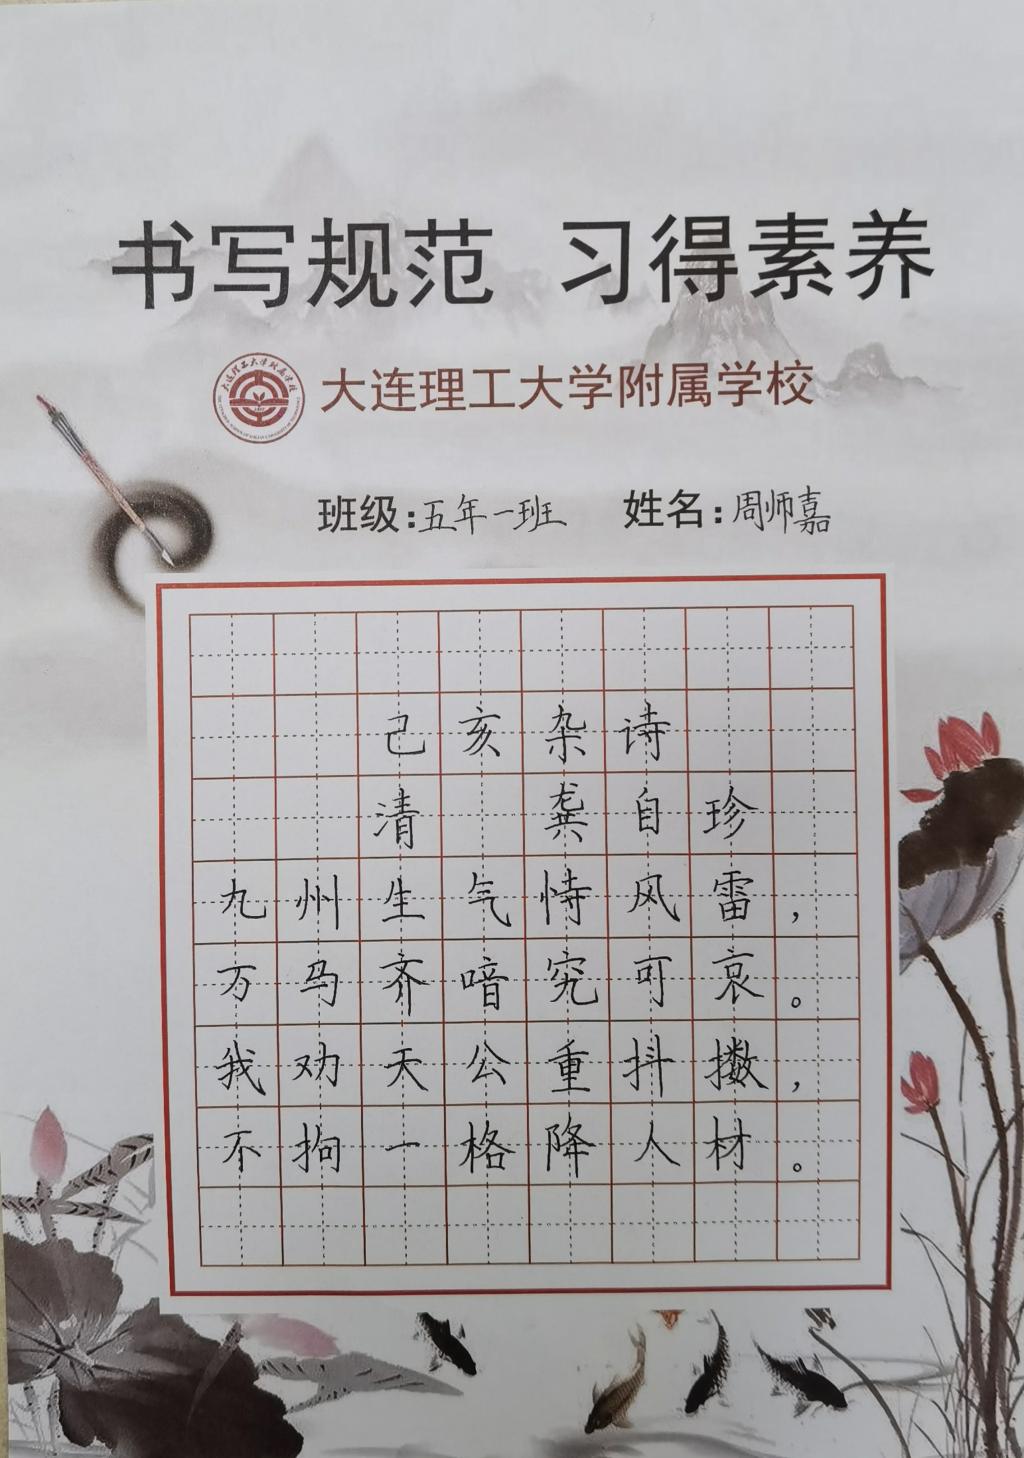 书写规范 习得素养
大连理工大学附属学校
班级:五年一班 姓名:周师嘉
己亥杂诗
清 龚自珍
九州生气恃风雷，
万马齐喑究可哀。
我劝天公重抖擞，
不拘一格降人材。